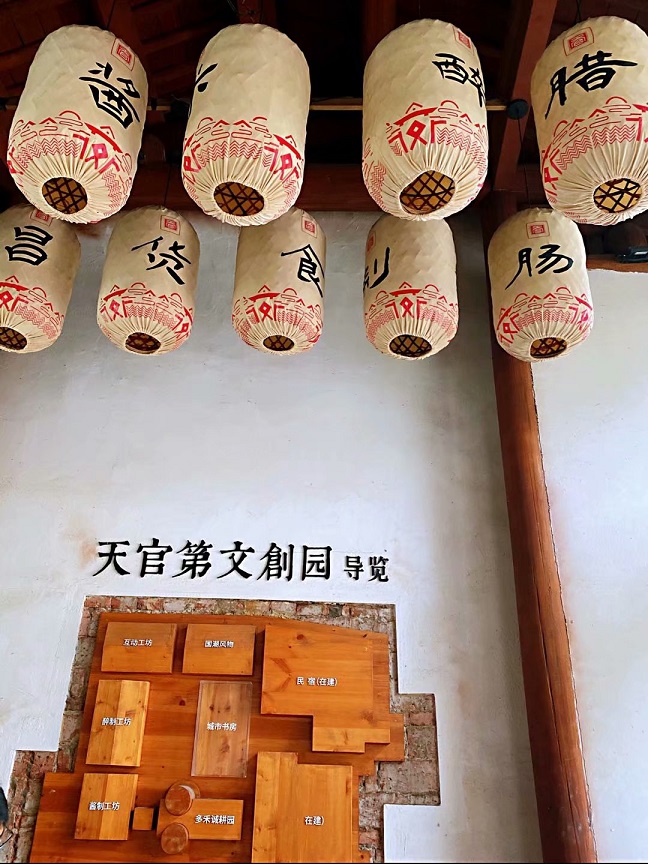 酱
醉
腊
昌
货
食
制
肠
天官第文創园 导览
互动工坊
国潮风物
民 宿(在建)
醉制工坊
城市书房
酱制工坊
多禾诚耕园
在建)